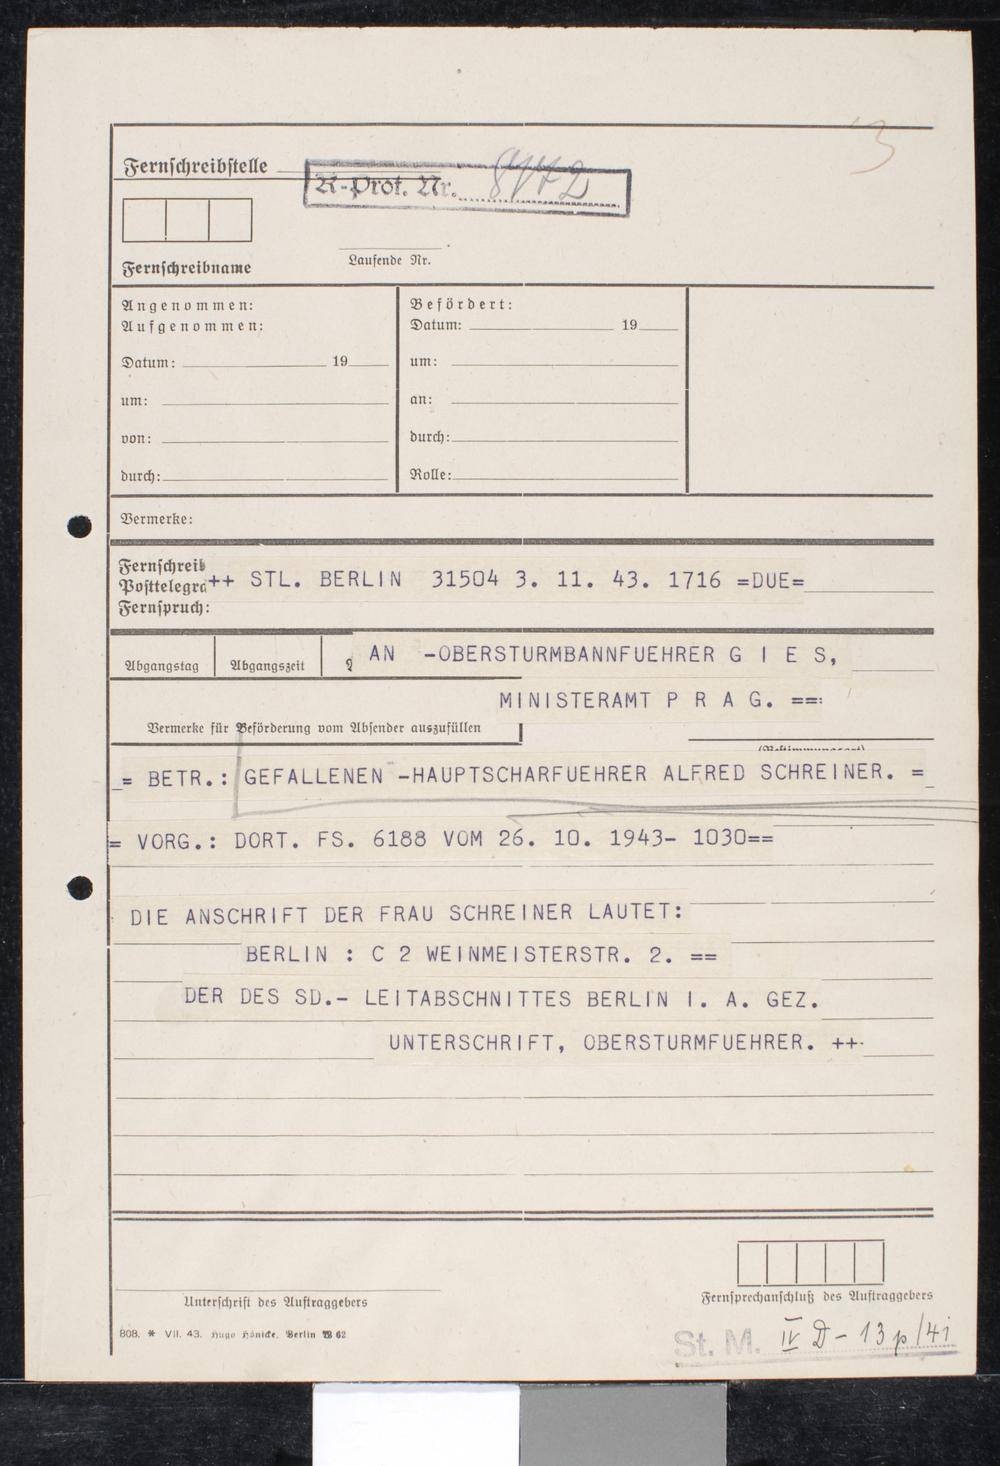 3
Fernschreibstelle
K-Prot. Nr. 8172
Fernschreibname
Laufende Nr.
Angenommen:
Aufgenommen:
Datum: 19
um:
von:
durch:
Befördert:
Datum: 19
um:
an:
durch:
Rolle:
Vermerke:
Fernschreib
Posttelegra
Fernspruch:
++ STL. BERLIN 31504 3. 11. 43. 1716 =DUE=
Abgangstag
Abgangszeit
AN -OBERSTURMBANNFUEHRER G I E S,
MINISTERAMT P R A G. ==
Vermerke für Beförderung vom Absender auszufüllen
(Bestimmungsort)
= BETR.: GEFALLENEN -HAUPTSCHARFUEHRER ALFRED SCHREINER. =
= VORG.: DORT. FS. 6188 VOM 26. 10. 1943- 1030==
DIE ANSCHRIFT DER FRAU SCHREINER LAUTET:
BERLIN : C 2 WEINMEISTERSTR. 2. ==
DER DES SD.- LEITABSCHNITTES BERLIN I. A. GEZ.
UNTERSCHRIFT, OBERSTURMFUEHRER. ++
Unterschrift des Auftraggebers
Fernsprechanschluß des Auftraggebers
808. * VII. 43. Hugo Hönicke, Berlin W 62
St. M. IV D - 13 p/41